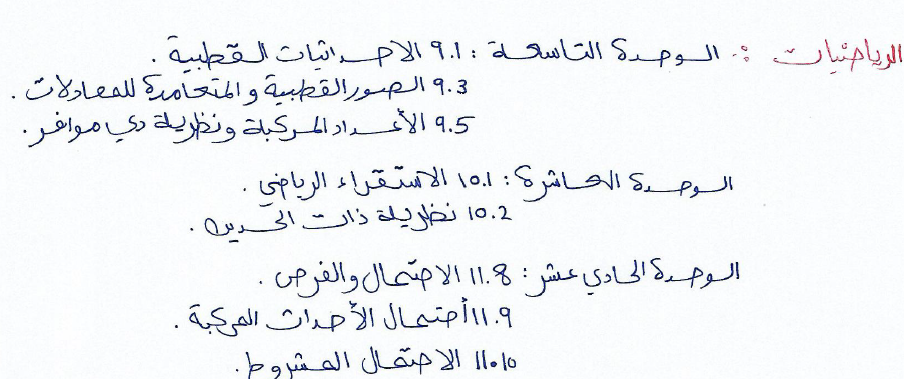 الرياضيات : الوحدة التاسعة : 9.1 الاحداثيات القطبية .
9.3 الصور القطبية و المتعامدة للمعادلات .
9.5 الأعداد المركبة ونظرية دي موافر .
الوحدة العاشرة : 10.1 الاستقراء الرياضي .
10.2 نظرية ذات الحدين .
الوحدة الحادي عشر : 11.8 الاحتمال والفرص .
11.9 أحتمال الأحداث المركبة .
11.10 الاحتمال المشروط .